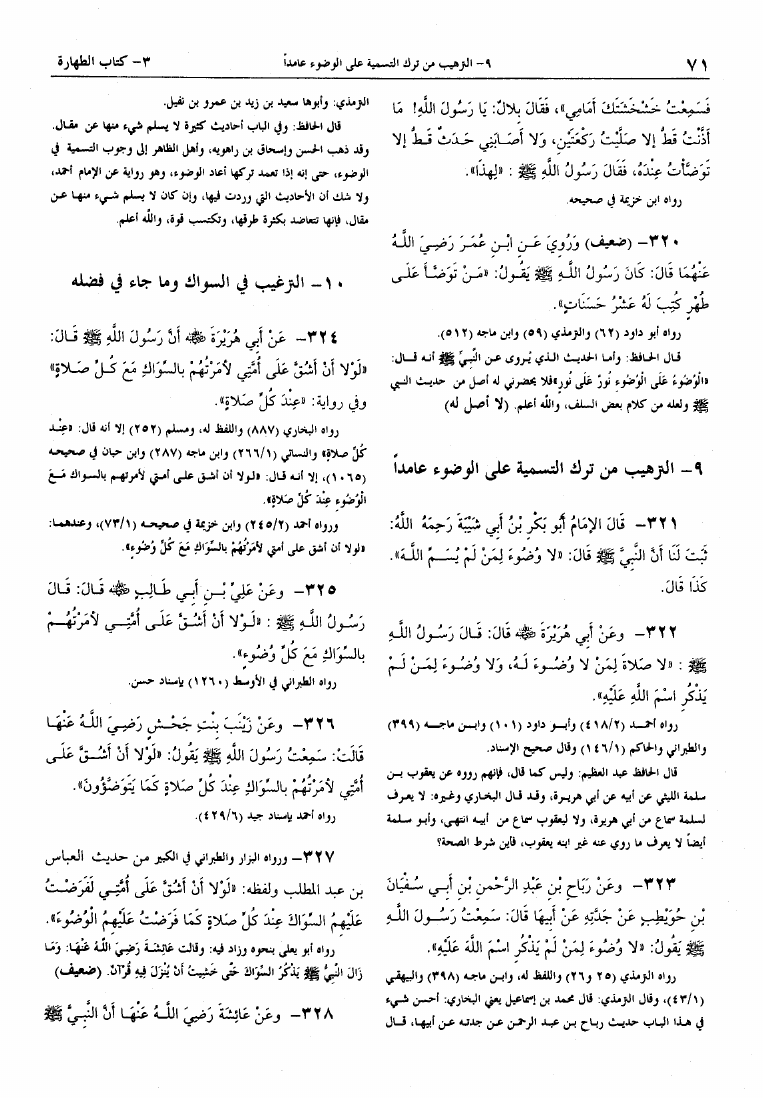 ٧١
٩- الترهيب من ترك التسمية على الوضوء عامداً
٣- كتاب الطهارة
فَسَمِعْتُ خَشْخَشَتَكَ أَمَامِي»، فَقَالَ بِلالٌ: يَا رَسُولَ اللَّهِ! مَا
أَذَّنْتُ قَطُّ إلا صَلَّيْتُ رَكْعَتَيْنِ، وَلا أَصَابَنِي حَدَثٌ قَطُّ إلا
تَوَضَّأْتُ عِنْدَهُ، فَقَالَ رَسُولُ اللَّهِ ﷺ : «لِهذَا».
رواه ابن خزيمة في صحيحه.
٣٢٠- (ضعيف) وَرُوِيَ عَنِ ابْنِ عُمَرَ رَضِيَ اللَّهُ
عَنْهُمَا قَالَ: كَانَ رَسُولُ اللَّهِ ﷺ يَقُولُ: «مَنْ تَوَضَّأَ عَلَى
طُهْرٍ كُتِبَ لَهُ عَشْرُ حَسَنَاتٍ».
رواه أبو داود (٦٢) والترمذي (٥٩) وابن ماجه (٥١٢).
قال الحافظ: وأما الحديث الذي يُروى عن النَّبِيِّ ﷺ أنه قال:
«الْوُضُوءُ عَلَى الْوُضُوءِ نُورٌ عَلَى نُورٍ»فلا يحضرني له أصل من حديث النبي
ﷺ ولعله من كلام بعض السلف، والله أعلم. (لا أصل له)
٩- الترهيب من ترك التسمية على الوضوء عامداً
٣٢١- قَالَ الإِمَامُ أَبُو بَكْرِ بْنُ أَبِي شَيْبَةَ رَحِمَهُ اللَّهُ:
ثَبَتَ لَنَا أَنَّ النَّبِيَّ ﷺ قَالَ: «لا وُضُوءَ لِمَنْ لَمْ يُسَمِّ اللَّهَ».
كَذَا قَالَ.
٣٢٢- وعَنْ أَبِي هُرَيْرَةَ ﷺ قَالَ: قَالَ رَسُولُ اللَّهِ
ﷺ : «لا صَلاةَ لِمَنْ لا وُضُوءَ لَهُ، وَلا وُضُوءَ لِمَنْ لَمْ
يَذْكُرِ اسْمَ اللَّهِ عَلَيْهِ».
رواه أحمد (٤١٨/٢) وأبو داود (١٠١) وابن ماجه (٣٩٩)
والطبراني والحاكم (١٤٦/١) وقال صحيح الإسناد.
قال الحافظ عبد العظيم: وليس كما قال، فإنهم رووه عن يعقوب بن
سلمة الليثي عن أبيه عن أبي هريرة، وقد قال البخاري وغيره: لا يعرف
لسلمة سماع من أبي هريرة، ولا ليعقوب سماع من أبيه انتهى، وأبو سلمة
أيضاً لا يعرف ما روي عنه غير ابنه يعقوب، فأين شرط الصحة؟
٣٢٣- وعَنْ رَبَاحِ بْنِ عَبْدِ الرَّحْمنِ بْنِ أَبِي سُفْيَانَ
بْنِ حُوَيْطِبٍ عَنْ جَدَّتِهِ عَنْ أَبِيهَا قَالَ: سَمِعْتُ رَسُولَ اللَّهِ
ﷺ يَقُولُ: «لا وُضُوءَ لِمَنْ لَمْ يَذْكُرِ اسْمَ اللَّهِ عَلَيْهِ».
رواه الترمذي (٢٥ و٢٦) واللفظ له، وابن ماجه (٣٩٨) والبيهقي
(٤٣/١)، وقال الترمذي: قال محمد بن إسماعيل يعني البخاري: أحسن شيء
في هذا الباب حديث رباح بن عبد الرحمن عن جدته عن أبيها، قال
الترمذي: وأبوها سعيد بن زيد بن عمرو بن نفيل.
قال الحافظ: وفي الباب أحاديث كثيرة لا يسلم شيء منها عن مقال.
وقد ذهب الحسن وإسحاق بن راهويه، وأهل الظاهر إلى وجوب التسمية في
الوضوء، حتى إنه إذا تعمد تركها أعاد الوضوء، وهو رواية عن الإمام أحمد،
ولا شك أن الأحاديث التي وردت فيها، وإن كان لا يسلم شيء منها عن
مقال، فإنها تتعاضد بكثرة طرقها، وتكتسب قوة، والله أعلم.
١٠- الترغيب في السواك وما جاء في فضله
٣٢٤- عَنْ أَبِي هُرَيْرَةَ ﷺ أَنَّ رَسُولَ اللَّهِ ﷺ قَالَ:
«لَوْلا أَنْ أَشُقَّ عَلَى أُمَّتِي لأَمَرْتُهُمْ بِالسِّوَاكِ مَعَ كُلِّ صَلاةٍ»
وفي رواية: «عِنْدَ كُلِّ صَلاةٍ».
رواه البخاري (٨٨٧) واللفظ له، ومسلم (٢٥٢) إلا أنه قال: «عِنْدَ
كُلِّ صلاة» والنسائي (٢٦٦/١) وابن ماجه (٢٨٧) وابن حبان في صحيحه
(١٠٦٥)، إلا أنه قال: «لولا أن أشق على أمتي لأمرتهم بالسواك مَعَ
الْوُضُوءِ عِنْدَ كُلِّ صَلاةٍ».
ورواه أحمد (٢٤٥/٢) وابن خزيمة في صحيحه (٧٣/١)، وعندهما:
«لولا أن أشق على أمتي لأَمَرْتُهُمْ بِالسِّوَاكِ مَعَ كُلِّ وُضُوءٍ».
٣٢٥- وعَنْ عَلِيِّ بْنِ أَبِي طَالِبٍ ﷺ قَالَ: قَالَ
رَسُولُ اللَّهِ ﷺ : «لَوْلا أَنْ أَشُقَّ عَلَى أُمَّتِي لأَمَرْتُهُمْ
بِالسِّوَاكِ مَعَ كُلِّ وُضُوءٍ».
رواه الطبراني في الأوسط (١٢٦٠) بإسناد حسن.
٣٢٦- وعَنْ زَيْنَبَ بِنْتِ جَحْشٍ رَضِيَ اللَّهُ عَنْهَا
قَالَتْ: سَمِعْتُ رَسُولَ اللَّهِ ﷺ يَقُولُ: «لَوْلا أَنْ أَشُقَّ عَلَى
أُمَّتِي لأَمَرْتُهُمْ بِالسِّوَاكِ عِنْدَ كُلِّ صَلاةٍ كَمَا يَتَوَضَّؤُونَ».
رواه أحمد بإسناد جيد (٤٢٩/٦).
٣٢٧- ورواه البزار والطبراني في الكبير من حديث العباس
بن عبد المطلب ولفظه: «لَوْلا أَنْ أَشُقَّ عَلَى أُمَّتِي لَفَرَضْتُ
عَلَيْهِمُ السِّوَاكَ عِنْدَ كُلِّ صَلاةٍ كَمَا فَرَضْتُ عَلَيْهِمُ الْوُضُوءَ».
رواه أبو يعلى بنحوه وزاد فيه: وقالت عَائِشَةُ رَضِيَ اللَّهُ عَنْهَا: وَمَا
زَالَ النَّبِيُّ ﷺ يَذْكُرُ السِّوَاكَ حَتَّى خَشِيتُ أَنْ يُنْزَلَ فِيهِ قُرْآنٌ. (ضعيف)
٣٢٨- وعَنْ عَائِشَةَ رَضِيَ اللَّهُ عَنْهَا أَنَّ النَّبِيَّ ﷺ